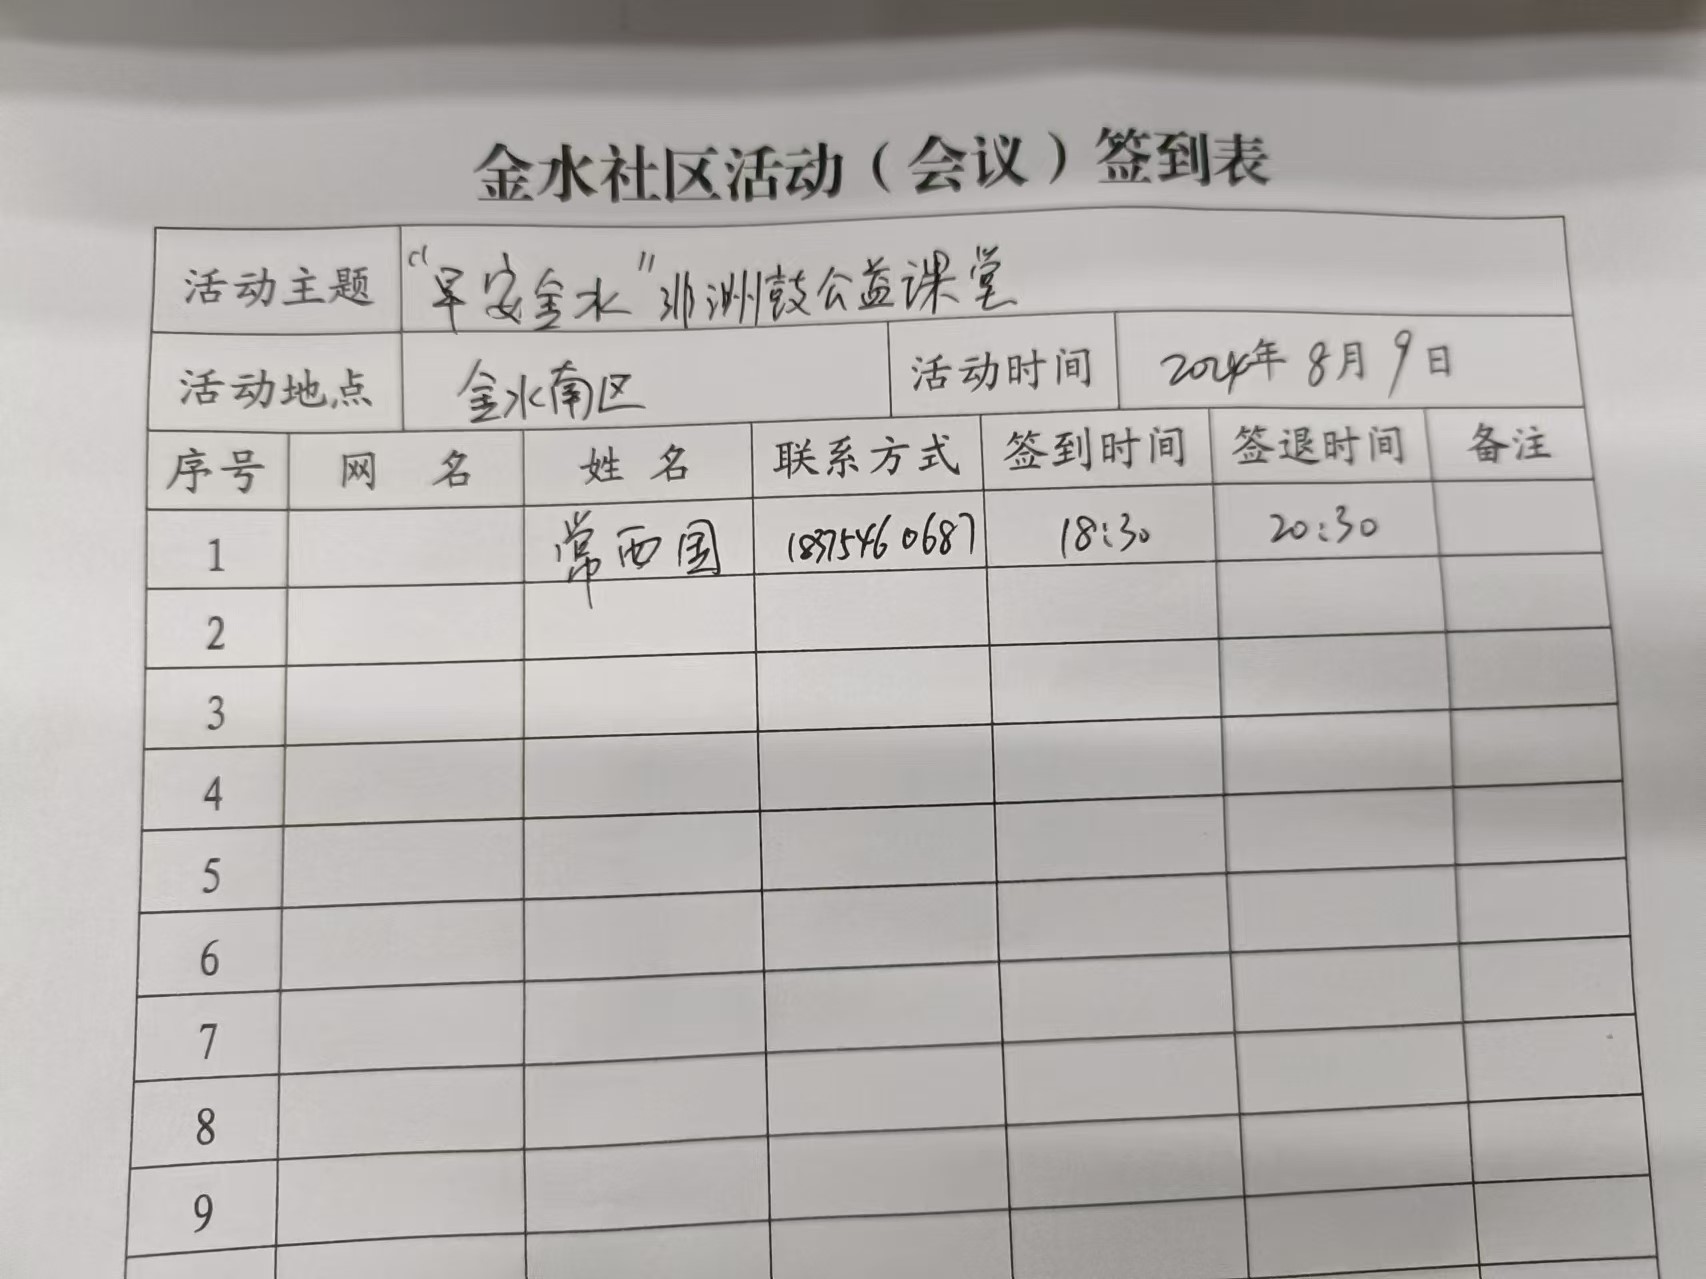 金水社区活动（会议）签到表
活动主题 “早安金水”非洲鼓公益课堂
活动地点 金水南区 活动时间 2024年8月9日
序号 网 名 姓 名 联系方式 签到时间 签退时间 备注
1 常西国 18375460687 18:30 20:30
2
3
4
5
6
7
8
9